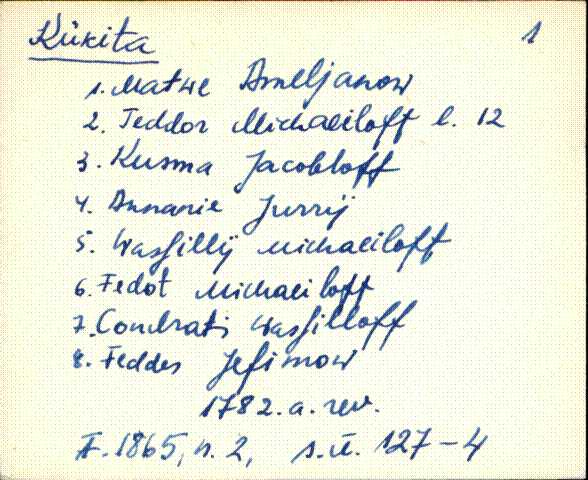 Kükita 1
1. Matwe Amelljanow
2. Feddor Michaeiloff l. 12
3. Kusma Jacobloff
4. Annanie Jurrij
5. Wassillÿ Michaeiloff
6. Fedot Michaeiloff
7. Condrati Wassilloff
8. Feddes Jefimow
1782. a. rev.
F. 1865, n. 2, s.ü. 127-4